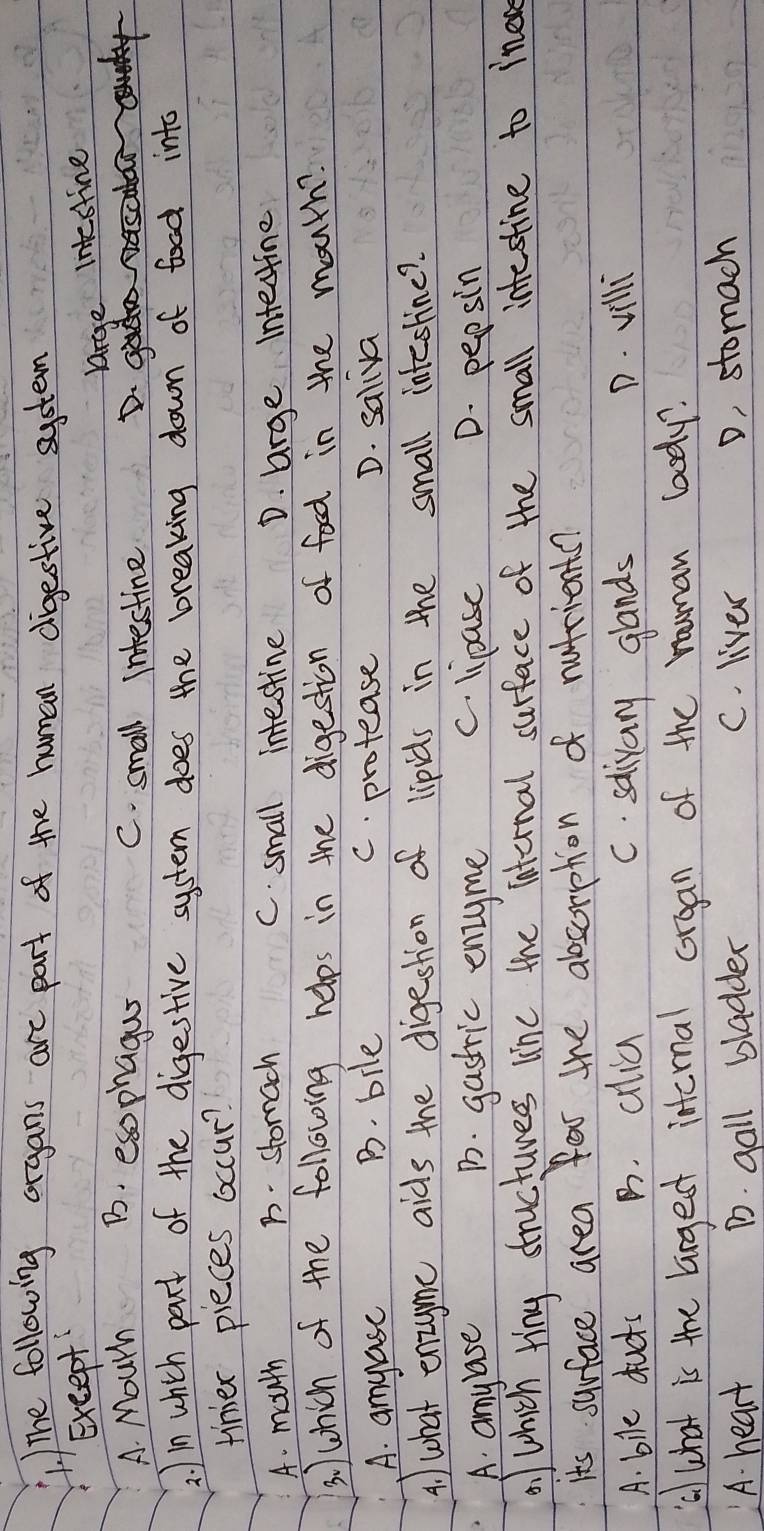 1.) The following organs are part of the human digestive system
Except:
A. Mouth B. esophagus C. small Intestine D. large Intestine
2.) In which part of the digestive system does the breaking down of food into
tinier pieces occur?
A. mouth B. stomach C. small intestine D. large Intestine
3.) Which of the following helps in the digestion of food in the mouth?
A. amylase B. bile C. protease D. saliva
4.) What enzyme aids the digestion of lipids in the small intestine?
A. amylase B. gastric enzyme C. lipase D. pepsin
5.) Which tiny structures line the internal surface of the small intestine to
its surface area for the absorption of nutrients?
A. bile ducts B. cilia C. salivary glands D. villi
6.) What is the largest internal organ of the human body?
A. heart B. gall bladder C. liver D. stomach